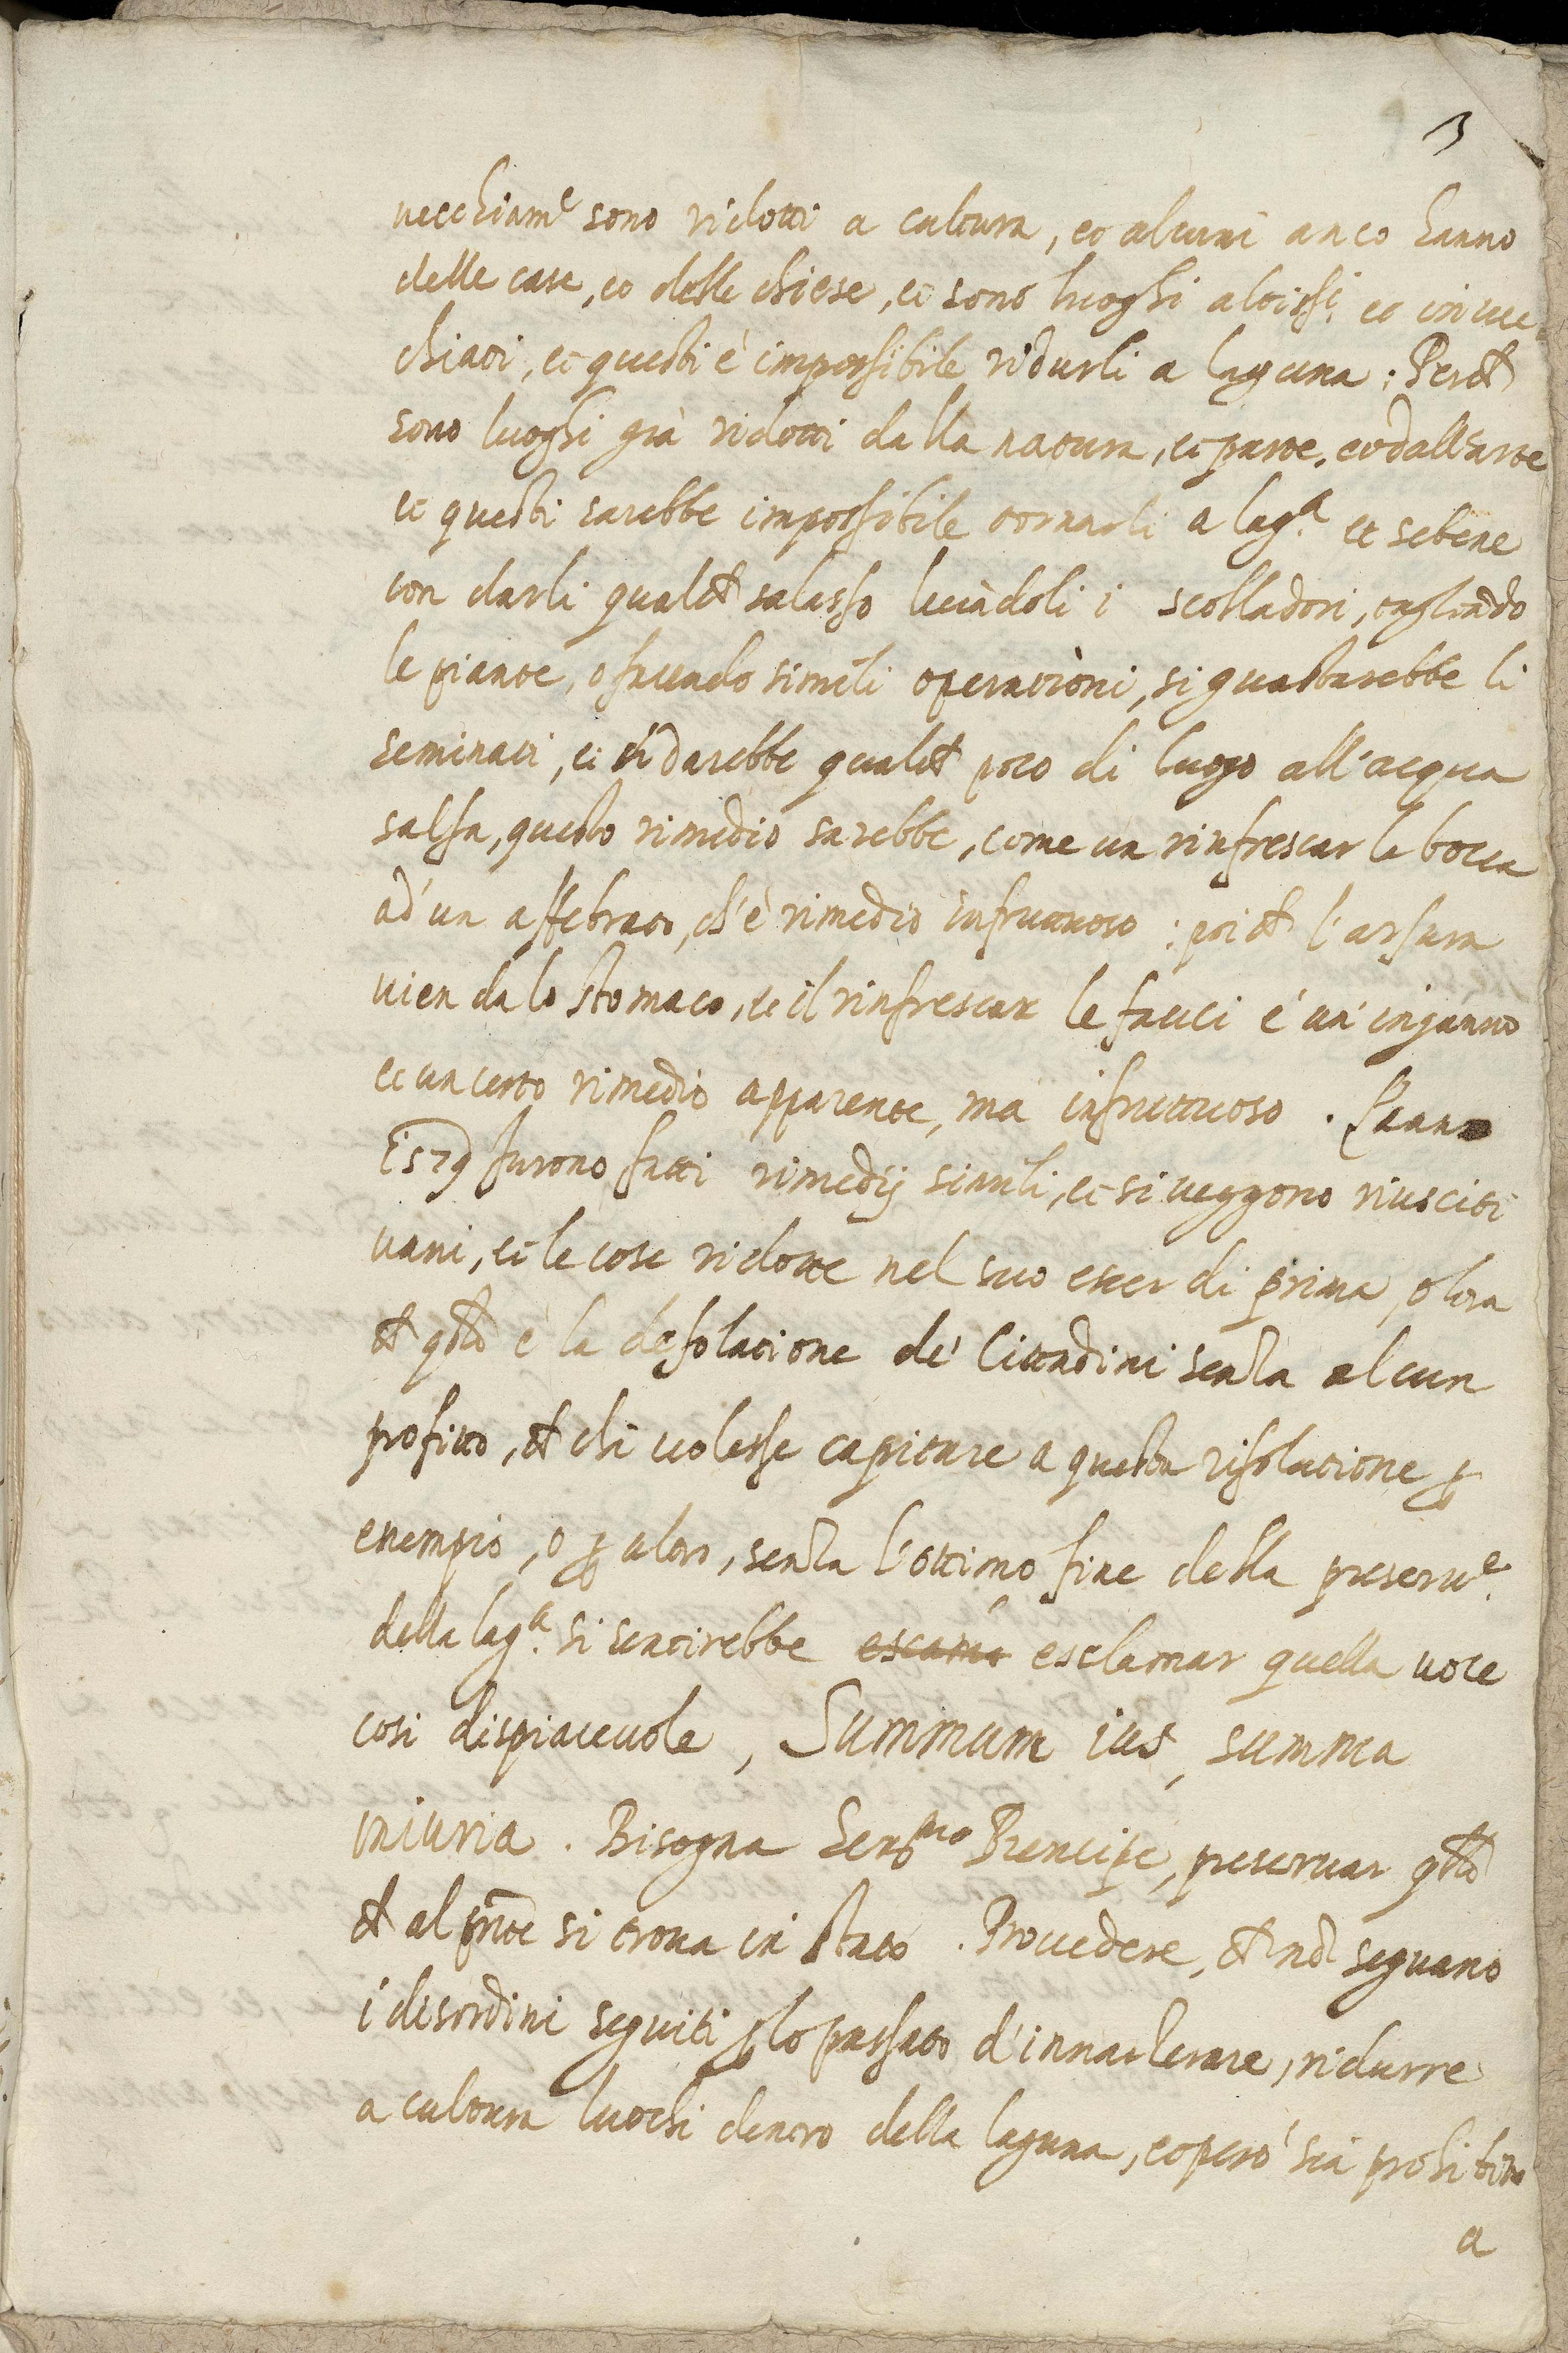 3
uecchiam.e sono ridotti a coltura, et alcuni anco hanno
delle case, et delle chiese, et sono luoghi altiss.i et inuec-
chiati, et questi è impossibile ridurli a laguna: Perche
sono luoghi già ridotti dalla natura, et parte, et dall'arte
et questi sarebbe impossibile tornarli a lag.a et sebene
con darli qualche salasso leuãdoli i scolladori, tagliãdo
le piante, o facendo simili operationi, si guastarebbe li
seminati, et si darebbe qualche poco di luogo all'acqua
salsa, questo rimedio sarebbe, come un rinfrescar la bocca
ad'un affebrato, ch'è rimedio infruttuoso: poiche l'arsura
uien da lo stomaco, et il rinfrescar le fauci é un'inganno
et un certo rimedio apparente, ma infruttuoso. L'anno
1579 furono fatti rimedij simili, et si ueggono riusciti
uani, et le cose ridotte nel suo esser di prima, oltra
che q̃sto è la desolatione de' Cittadini senza alcun
profitto, che chi uolesse capitare a questa risolutione ꝑ
exempio, o ꝑ altro, senza l'ottimo fine della preseru.e
della lag.a si sentirebbe escamo esclamar quella uoce
cosi dispiaceuole, Summum ius, summa
iniuria. Bisogna Ser.mo Prencipe, preseruar q̃sto
che al p̃nte si troua in stato. Prouedere, che nõ seguano
i desordini seguiti ꝑ lo passato d'innarzerare, ridurre
a coltura luochi dentro della laguna, et però sia prohibito
a